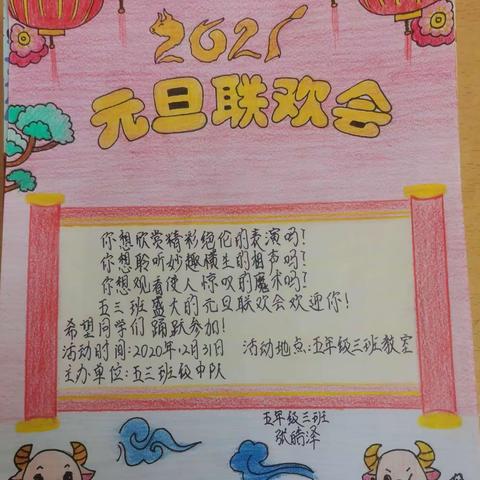 2021
元旦联欢会
你想欣赏精彩绝伦的表演吗?
你想聆听妙趣横生的相声吗?
你想观看使人惊叹的魔术吗?
五三班盛大的元旦联欢会欢迎你!
希望同学们踊跃参加!
活动时间:2020年12月31日 活动地点:五年级三班教室
主办单位:五三班级中队
五年级三班
张皓泽